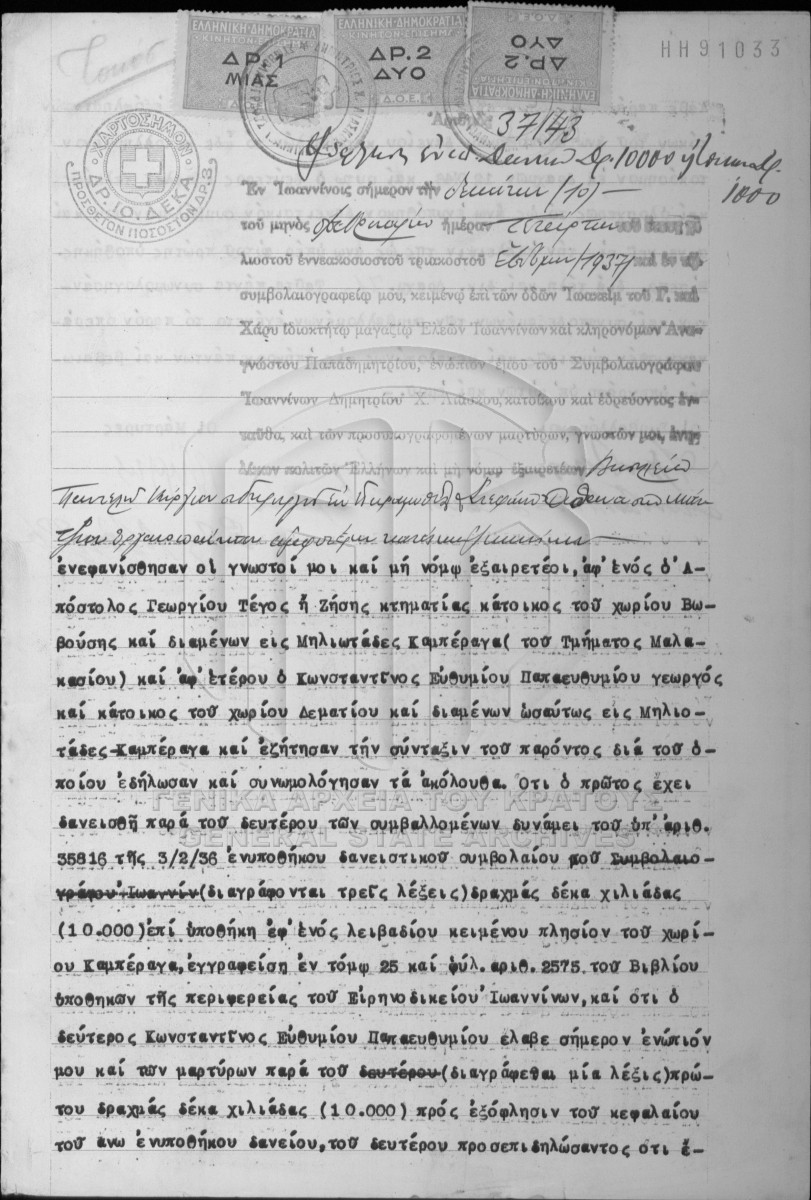 ΕΛΛΗΝΙΚΗ·ΔΗΜΟΚΡΑΤΙΑ
ΚΙΝΗΤΟΝ·ΕΠΙΣΗΜΑ
ΔΡ.1
ΜΙΑΣ
Δ.Ο.Ε.
ΕΛΛΗΝΙΚΗ·ΔΗΜΟΚΡΑΤΙΑ
ΚΙΝΗΤΟΝ·ΕΠΙΣΗΜΑ
ΔΡ.2
ΔΥΟ
Δ.Ο.Ε.
ΕΛΛΗΝΙΚΗ·ΔΗΜΟΚΡΑΤΙΑ
ΚΙΝΗΤΟΝ·ΕΠΙΣΗΜΑ
ΔΡ.2
ΔΥΟ
Δ.Ο.Ε.
ΗΗ91033
ΧΑΡΤΟΣΗΜΟΝ
ΔΡ.10.ΔΕΚΑ
ΠΡΟΣΘΕΤΟΝ ΠΟΣΟΣΤΟΝ ΔΡ.3
Ἀριθ. 37143
Δρ. 10000
1000
Ἐν Ἰωαννίνοις σήμερον τὴν δεκάτην (10)
τοῦ μηνὸς Φεβρουαρίου ἡμέραν Τετάρτην τοῦ
λιοστοῦ ἐννεακοσιοστοῦ τριακοστοῦ ἑβδόμου (1937) καὶ ἐν τῷ
συμβολαιογραφείῳ μου, κειμένῳ ἐπὶ τῶν ὁδῶν Ἰωακεὶμ τοῦ Γ. καὶ
Χάρυ ἰδιοκτήτῳ μαγαζίῳ Ἐλεῶν Ἰωαννίνων καὶ κληρονόμων Ἀνα-
γνώστου Παπαδημητρίου, ἐνώπιον ἐμοῦ τοῦ Συμβολαιογράφου
Ἰωαννίνων Δημητρίου Χ. Λιάσκου, κατοίκου καὶ ἑδρεύοντος ἐν-
ταῦθα, καὶ τῶν προσυπογραφομένων μαρτύρων, γνωστῶν μοι, ἐνη-
λίκων πολιτῶν Ἑλλήνων καὶ μὴ νόμῳ ἐξαιρετέων Βασιλείου
ἐνεφανίσθησαν οἱ γνωστοί μοι καί μή νόμῳ ἐξαιρετέοι, ἀφ' ἑνός ὁ Ἀ-
πόστολος Γεωργίου Τέγος ἤ Ζήσης κτηματίας κάτοικος τοῦ χωρίου Βω-
βούσης καί διαμένων εἰς Μηλιωτάδες Καμπέραγα( τοῦ Τμήματος Μαλα-
κασίου) καί ἀφ' ἑτέρου ὁ Κωνσταντῖνος Εὐθυμίου Παπαευθυμίου γεωργός
καί κάτοικος τοῦ χωρίου Δεματίου καί διαμένων ὡσαύτως εἰς Μηλιο-
τάδες-Καμπέραγα καί ἐζήτησαν τήν σύνταξιν τοῦ παρόντος διά τοῦ ὁ-
ποίου ἐδήλωσαν καί συνωμολόγησαν τά ἀκόλουθα. Ὅτι ὁ πρῶτος ἔχει
δανεισθῆ παρά τοῦ δευτέρου τῶν συμβαλλομένων δυνάμει τοῦ ὑπ' ἀριθ.
35816 τῆς 3/2/36 ἐνυποθήκου δανειστικοῦ συμβολαίου μοῦ Συμβολαιο-
γράφου Ἰωαννίν(διαγράφονται τρεῖς λέξεις)δραχμάς δέκα χιλιάδας
(10.000)ἐπί ὑποθήκῃ ἐφ' ἑνός λειβαδίου κειμένου πλησίον τοῦ χωρί-
ου Καμπέραγα, ἐγγραφείσῃ ἐν τόμῳ 25 καί φύλ. ἀριθ. 2575 τοῦ Βιβλίου
ὑποθηκῶν τῆς περιφερείας τοῦ Εἰρηνοδικείου Ἰωαννίνων, καί ὅτι ὁ
δεύτερος Κωνσταντῖνος Εὐθυμίου Παπαευθυμίου ἔλαβε σήμερον ἐνώπιόν
μου καί τῶν μαρτύρων παρά τοῦ δευτέρου(διαγράφεται μία λέξις)πρώ-
του δραχμάς δέκα χιλιάδας (10.000) πρός ἐξόφλησιν τοῦ κεφαλαίου
τοῦ ἄνω ἐνυποθήκου δανείου, τοῦ δευτέρου προσεπιδηλώσαντος ὅτι ἔ-
ΓΕΝΙΚΑ ΑΡΧΕΙΑ ΤΟΥ ΚΡΑΤΟΥΣ
GENERAL STATE ARCHIVES